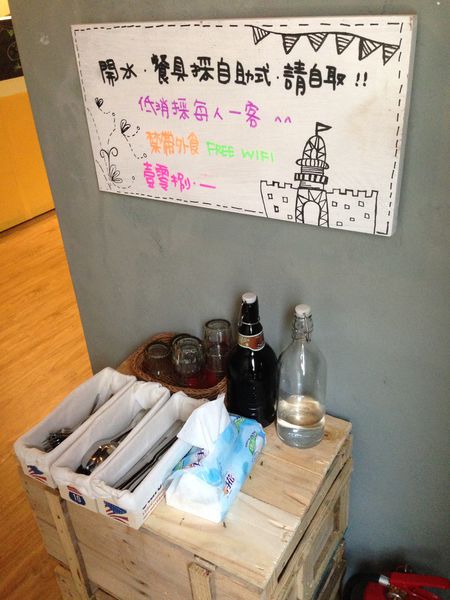 開水．餐具採自助式．請自取!!
低消採每人一客 ^^
禁帶外食 FREE WIFI
壹零捌．一